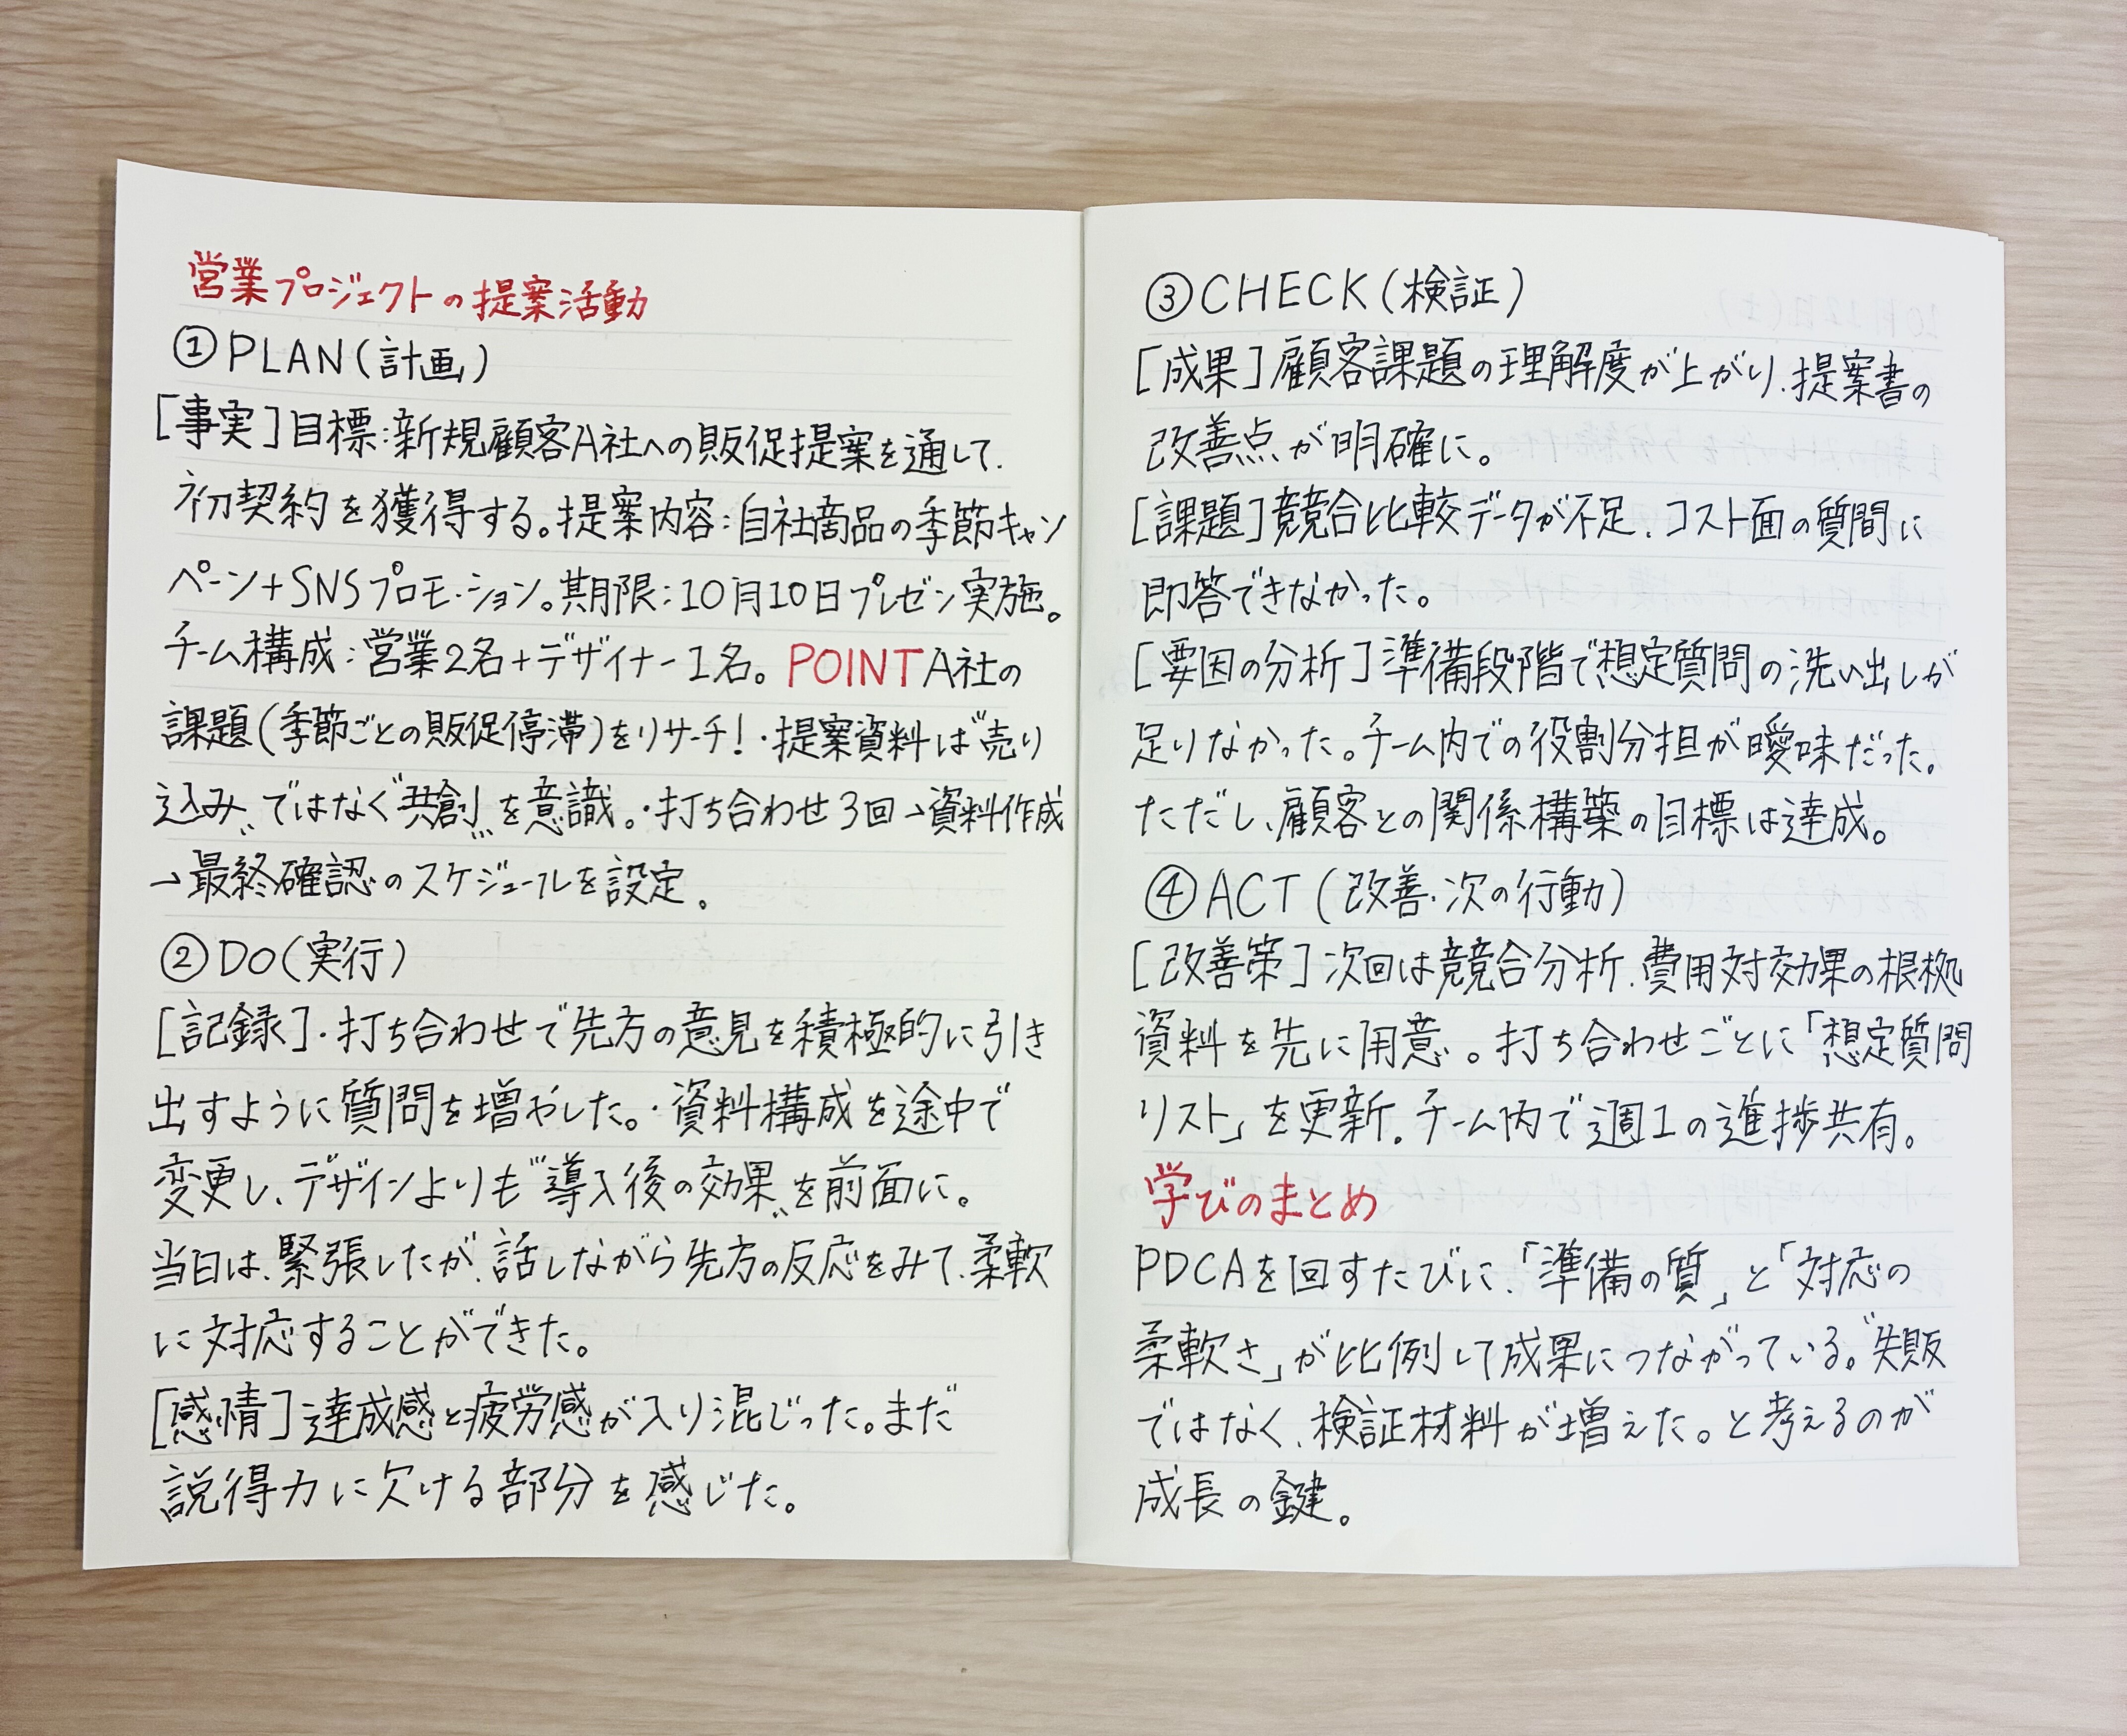 営業プロジェクトの提案活動
①PLAN(計画)
[事実]目標:新規顧客A社への販促提案を通して、
初契約を獲得する。提案内容:自社商品の季節キャン
ペーン+SNSプロモーション。期限:10月10日プレゼン実施。
チーム構成:営業2名+デザイナー1名。POINT A社の
課題(季節ごとの販促停滞)をリサーチ!・提案資料は〝売り
込み〟ではなく〝共創〟を意識。・打ち合わせ3回→資料作成
→最終確認のスケジュールを設定。
②DO(実行)
[記録]・打ち合わせで先方の意見を積極的に引き
出すように質問を増やした。・資料構成を途中で
変更し、デザインよりも〝導入後の効果〟を前面に。
当日は、緊張したが、話しながら先方の反応をみて、柔軟
に対応することができた。
[感情]達成感と疲労感が入り混じった。まだ
説得力に欠ける部分を感じた。
③CHECK(検証)
[成果]顧客課題の理解度が上がり、提案書の
改善点が明確に。
[課題]競合比較データが不足、コスト面の質問に
即答できなかった。
[要因の分析]準備段階で想定質問の洗い出しが
足りなかった。チーム内での役割分担が曖昧だった。
ただし、顧客との関係構築の目標は達成。
④ACT(改善・次の行動)
[改善策]次回は競合分析、費用対効果の根拠
資料を先に用意。打ち合わせごとに「想定質問
リスト」を更新。チーム内で週1の進捗共有。
学びのまとめ
PDCAを回すたびに、「準備の質」と「対応の
柔軟さ」が比例して成果につながっている。〝失敗
ではなく、検証材料が増えた。と考えるのが
成長の鍵。